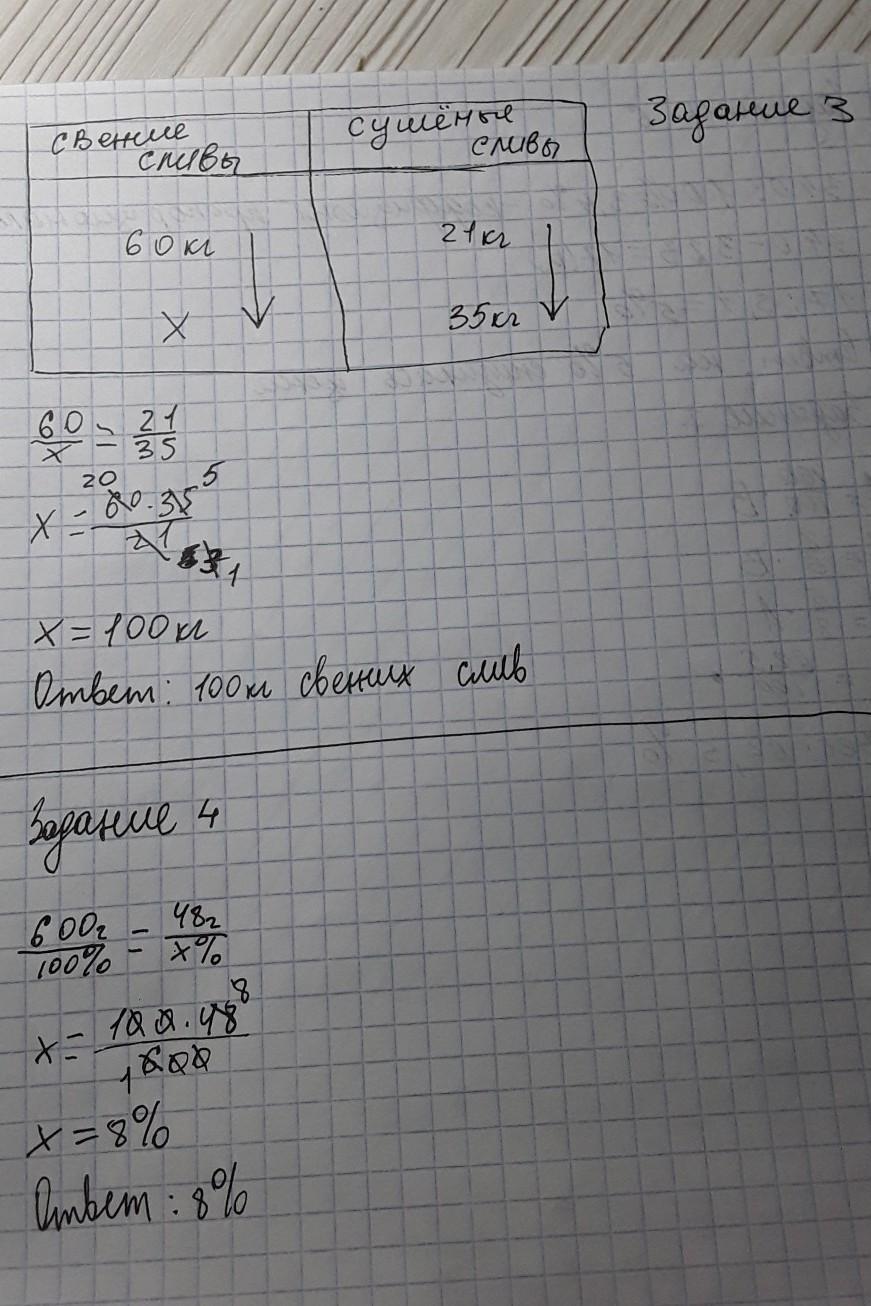 Задание 3
свежие сливы
сушёные сливы
60кг
21кг
x
35кг
60/x = 21/35
20 5
x = 60·35/21
1
x = 100кг
Ответ: 100кг свежих слив
Задание 4
600г/100% = 48г/x%
8
x = 100·48/600
1
x = 8%
Ответ: 8%